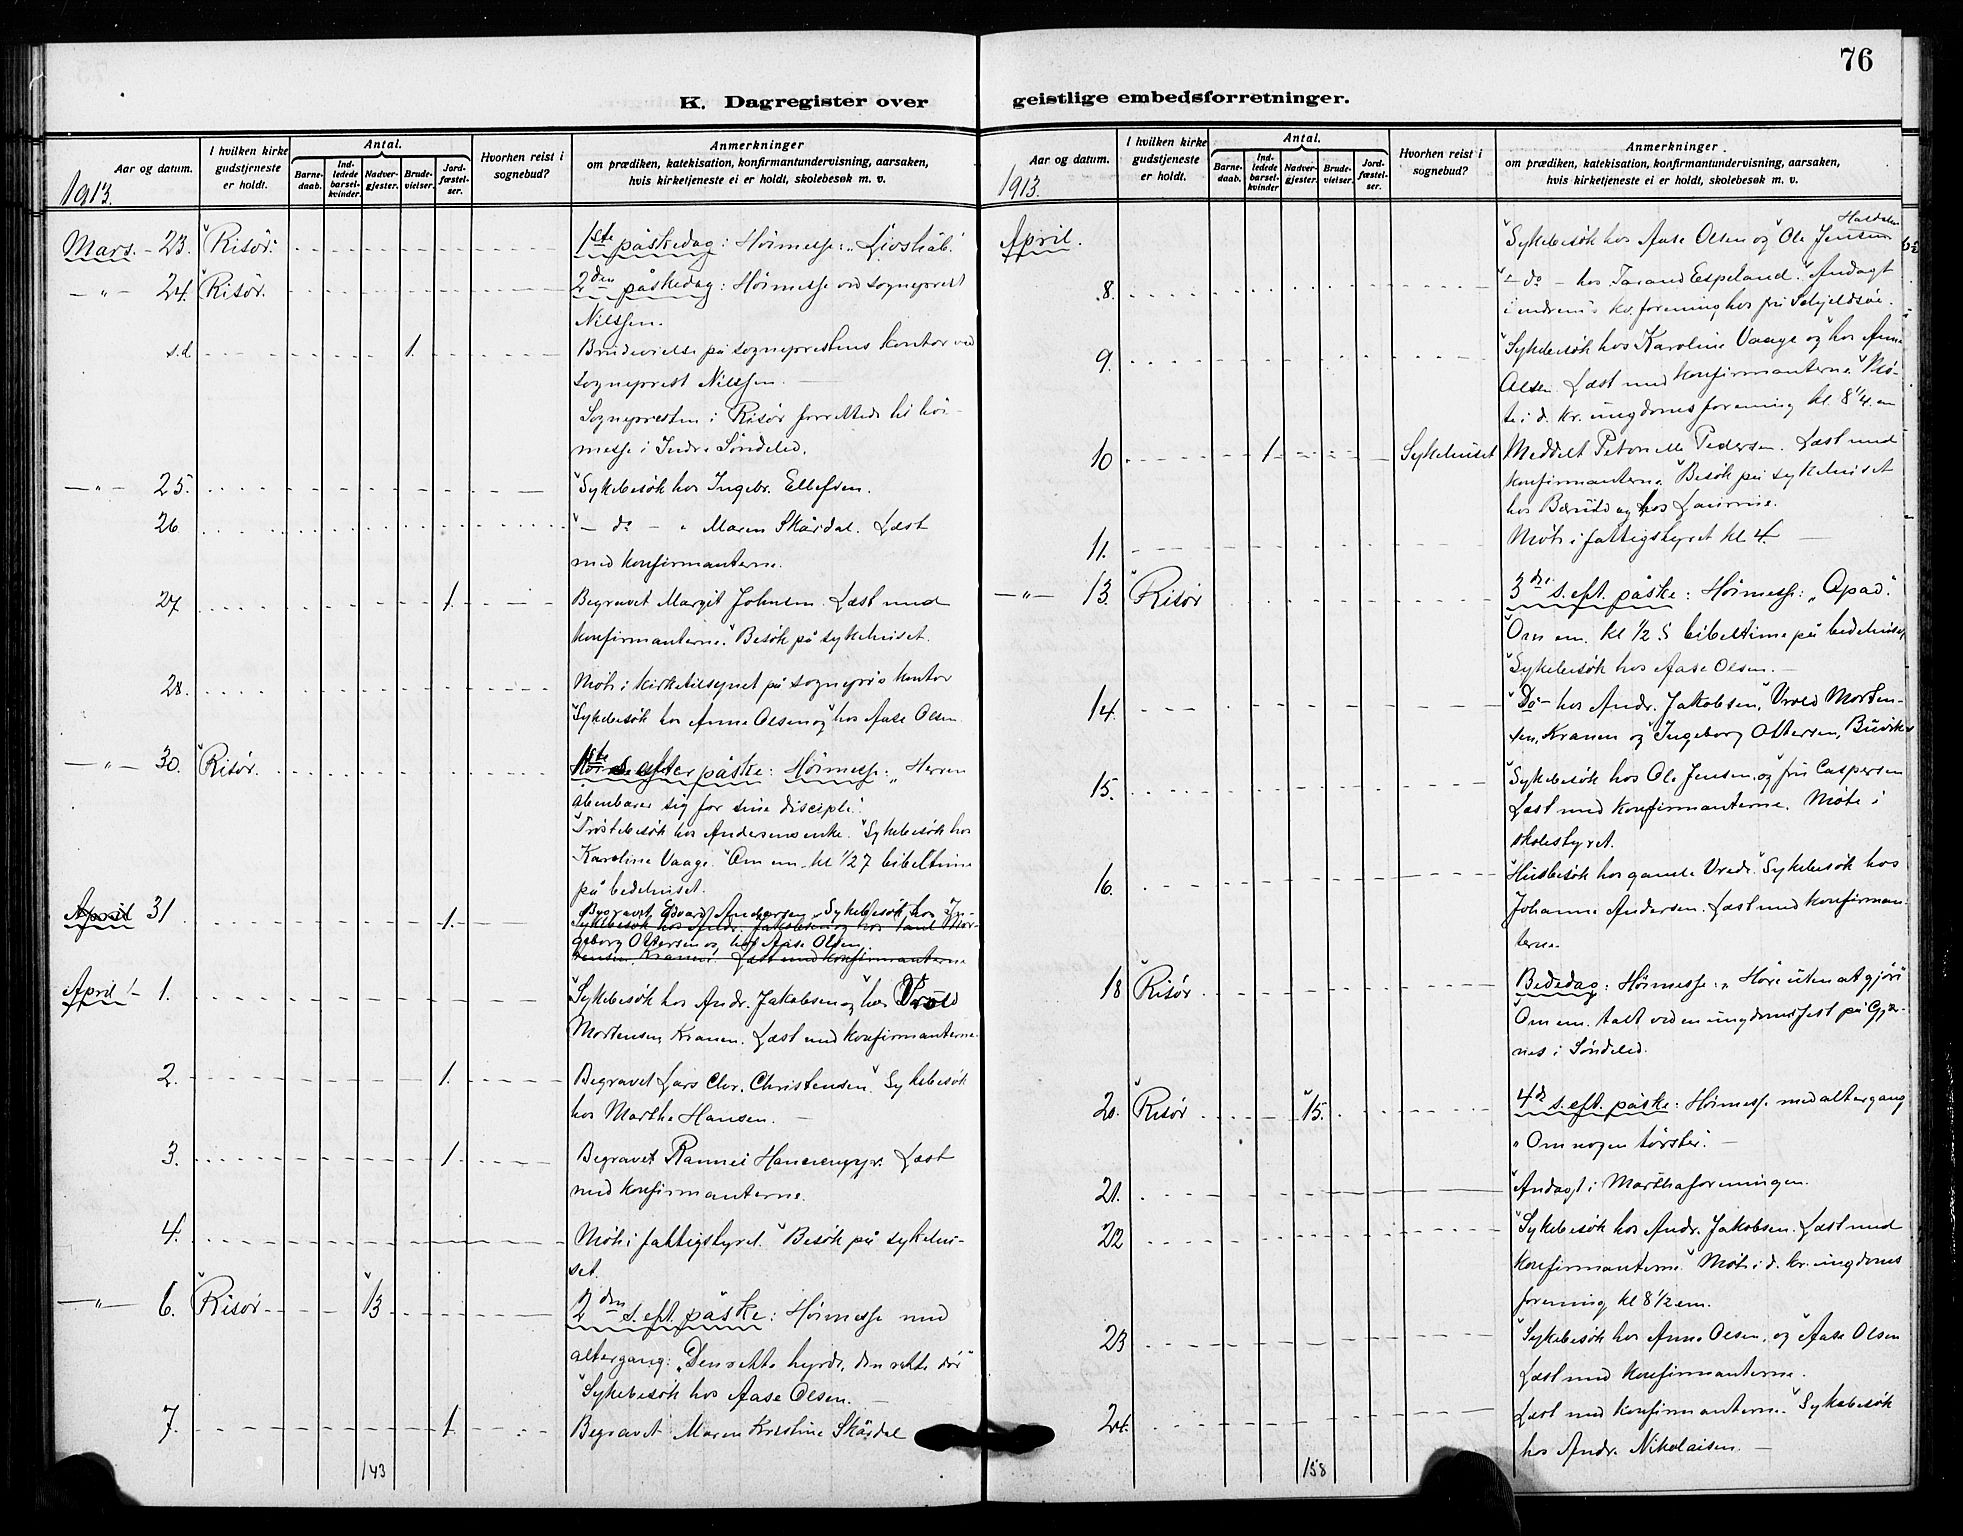 76
K. Dagregister over
geistlige embedsforretninger.
Aar og datum.
1913.
I hvilken kirke gudstjeneste er holdt.
Antal.
Barnedaab.
Indledede barselkvinder.
Nadvergjester.
Brudevielser.
Jordfæstelser.
Hvorhen reist i sognebud?
Anmerkninger
om prædiken, katekisation, konfirmantundervisning, aarsaken,
hvis kirketjeneste ei er holdt, skolebesøk m. v.
Mars. - 23. Risør. 1ste påskedag: Høimesse: "Livshåb."
- " - 24. Risør. 2den påskedag: Høimesse ved sogneprest
Nilssen.
s.d. 1. Brudevielse på sogneprestens kontor ved
sogneprest Nilssen. -
Sognepresten i Risør forrettede til høi-
messe i Indre Søndeled.
- " - 25. Sykebesøk hos Ingebr. Ellefsen.
26 - do - " Maren Skårdal. Læst
med konfirmanterne.
27 1. Begravet Margit Johnsen. Læst med
konfirmanterne. Besøk på sykehuset.
28. Møte i kirketilsynet på sognepr's kontor
Sykebesøk hos Anne Olsen og hos Aase Olsen.
- " - 30. Risør. 1ste s. efter påske: Høimesse: "Herren
åbenbarer sig for sine disciple."
Trøstebesøk hos Andersens enke. Sykebesøk hos
Karoline Vaage. Om em. kl 1/2 7 bibeltime
på bedehuset.
April 31 1. Begravet Edvard Andersen. Sykebesøk hos In-
Sykebesøk hos Andr. Jakobsen og hos
geborg Ottersen og hos Aase Olsen.
Kranen. Læst med konfirmanterne
April - 1. Sykebesøk hos Andr. Jakobsen og hos Vrold
Mortensen, Kranen. Læst med konfirmanterne.
2. 1. Begravet Lars Chr. Christensen. Sykebesøk
hos Marthe Hansen. -
3. 1. Begravet Læst
med konfirmanterne.
4. Møte i fattigstyret. Besøk på sykehu-
set.
- " - 6. Risør 13 2den s. eft. påske: Høimesse med
altergang: "Den rette hyrde, den rette dør"
Sykebesøk hos Aase Olsen. -
7. 1. Begravet Maren Kristine Skårdal
143
Aar og datum.
1913.
I hvilken kirke gudstjeneste er holdt.
Antal.
Barnedaab.
Indledede barselkvinder
Nadvergjester.
Brudevielser.
Jordfæstelser.
Hvorhen reist i sognebud?
Anmerkninger.
om prædiken, katekisation, konfirmantundervisning, aarsaken,
hvis kirketjeneste ei er holdt, skolebesøk m. v.
April. Sykebesøk hos Aase Olsen og Ole Jensen
8. - do - hos Taran Espeland. Andagt
i indrem's kv.forening hos fru
9. Sykebesøk hos Karoline Vaage og hos Anne
Olsen. Læst med konfirmanterne. Mø-
te i d. kr. ungdomsforening kl. 8 1/4 em
10 1 Sykehuset Meddelt Petonelle Pedersen. Læst med
konfirmanterne. Besøk på sykehuset
hos og hos Laurine.
11. Møte i fattigstyret kl. 4. -
- " - 13. Risør 3die s. eft. påske: Høimesse: "Opad."
Om em. kl 1/2 5 bibeltime på bedehuset,
Sykebesøk hos Aase Olsen. -
14. Do - hos Andr. Jakobsen, Vrold Morten-
sen, Kranen og Ingeborg Ottersen, Buviken
15. Sykebesøk hos Ole Jensen, og fru Caspersen
Læst med konfirmanterne. Møte i
skolestyret.
16. Husbesøk hos gamle Sykebesøk hos
Johanne Andersen. Læst med konfirman-
terne.
18 Risør. Bededag: Høimesse: "Høre uten at gjøre"
Om em. talt ved en ungdomsfest på Gjer-
nes i Søndeled.
20. Risør 15. 4de s. eft. påske: Høimesse med altergang
"Om nogen tørster." -
21. Andagt i Marthaforeningen.
22 Sykebesøk hos Andr. Jakobsen. Læst med
konfirmanterne. Møte i d. kr. ungdoms
forening kl 8 1/2 em.
23 Sykebesøk hos Anne Olsen, og Aase Olsen
Læst med konfirmanterne.
24. Læst med konfirmanterne. Sykebesøk
hos Andr. Nikolaisen. -
158